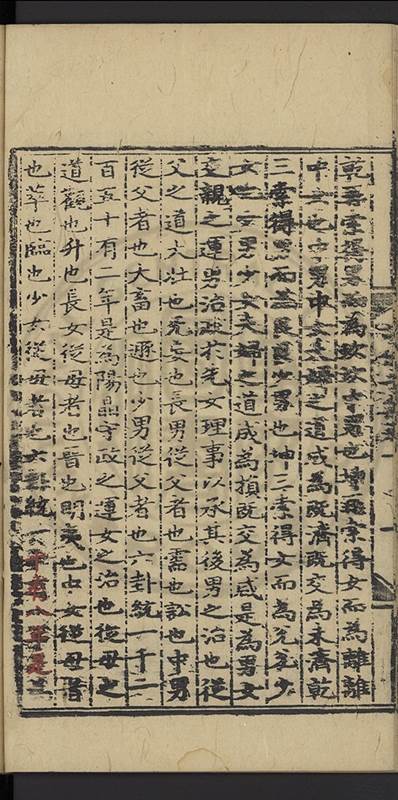 乾再索得男而為坎坎中男也坤再索得女而為離離
中女也中男中女夫婦之道成為既濟既交為未濟乾
三索得男而為艮艮少男也坤三索得女而為兌兌少
女也少男少女夫婦之道成為損既交為咸是為男女
交親之運男治政於先女理事以承其後男之治也從
父之道大壯也无妄也長男從父者也需也訟也中男
從父者也大畜也遯也少男從父者也六卦統一千二
百五十有二年是為陽晶守政之運女之治也從母之
道觀也升也長女從母者也晉也明夷也中女從母者
也萃也臨也少女從母者也六卦統一千有八年是